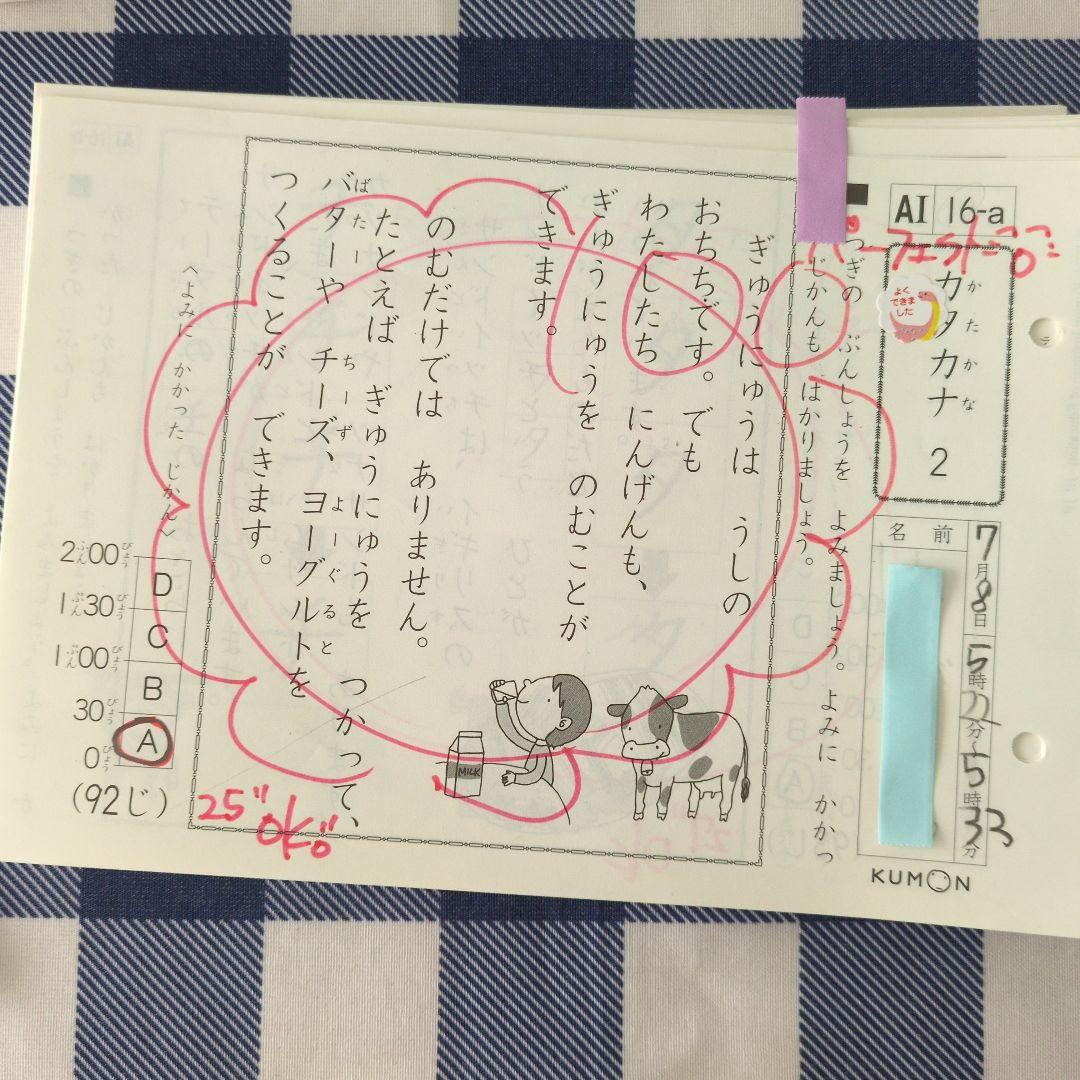 AI 16-a
パーフェクト!!
カタカナ 2
かたかな
よく
できま
した
名前
7月8日
5時
分～5時33分
KUMON
つぎの ぶんしょうを よみましょう。 よみに かかっ
じかんも はかりましょう。
ぎゅうにゅうは うしの
おちちです。 でも
わたしたち にんげんも、
ぎゅうにゅうを のむことが
できます。
のむだけでは ありません。
たとえば ぎゅうにゅうを つかって、
バターや チーズ、ヨーグルトを
ばたー ちーず よーぐると
つくることが できます。
MILK
〈よみに かかった じかん〉
2ぷん00びょう
1ぷん30びょう
1ぷん00びょう
30びょう
0びょう
D
C
B
A
(92じ)
25" ok!!